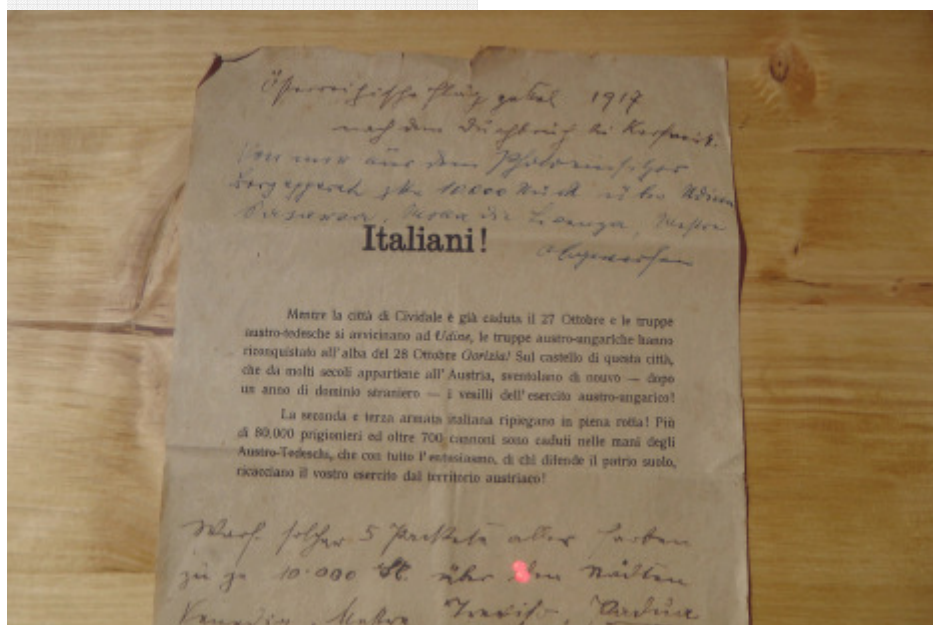 Österreichische Flugzettel 1917
nach dem Durchbruch bei Karfreit.
Von mir aus dem
10.000 Stück über Udine
Italiani!
abgeworfen
Mentre la città di Cividale è già caduta il 27 Ottobre e le truppe
austro-tedesche si avvicinano ad Udine, le truppe austro-ungariche hanno
riconquistato all'alba del 28 Ottobre Gorizia! Sul castello di questa città,
che da molti secoli appartiene all'Austria, sventolano di nuovo — dopo
un anno di dominio straniero — i vesilli dell'esercito austro-ungarico!
La seconda e terza armata italiana ripiegano in piena rotta! Più
di 80.000 prigionieri ed oltre 700 cannoni sono caduti nelle mani degli
Austro-Tedeschi, che con tutto l'entusiasmo, di chi difende il patrio suolo,
ricacciano il vostro esercito dal territorio austriaco!
Warf solcher 5 Packete aller Farben
zu je 10.000 St. über den Städten
Venedig, Mestre, Treviso, Padua